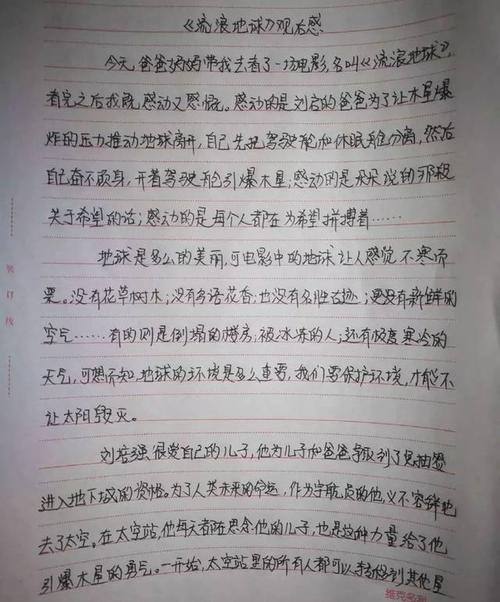 《流浪地球》观后感
今天,爸爸妈妈带我去看了一场电影,名叫《流浪地球》,
看完之后我既感动又感慨。感动的是刘启的爸爸为了让木星爆
炸的压力推动地球离开,自己先把驾驶舱和休眠舱分离,然后
自己奋不顾身,开着驾驶舱引爆木星;感动的是朵朵说的那段
关于希望的话;感动的是每个人都在为希望拼搏着……
地球是多么的美丽,可电影中的地球让人感觉不寒而
栗。没有花草树木;没有鸟语花香;也没有名胜古迹;更没有新鲜的
空气……有的则是倒塌的楼房;被冰冻的人;还有极度寒冷的
天气,可想而知,地球的环境是多么重要,我们要保护环境,才能不
让太阳毁灭。
刘培强很爱自己的儿子,他为儿子和爸爸争取到了免抽签
进入地下城的资格。为了人类未来的命运,作为宇航员的他,义不容辞地
去了太空。在太空站,他每天都在思念他的儿子,也是这种力量给了他
引爆木星的勇气。一开始,太空站里的所有人都可以转移到其他星